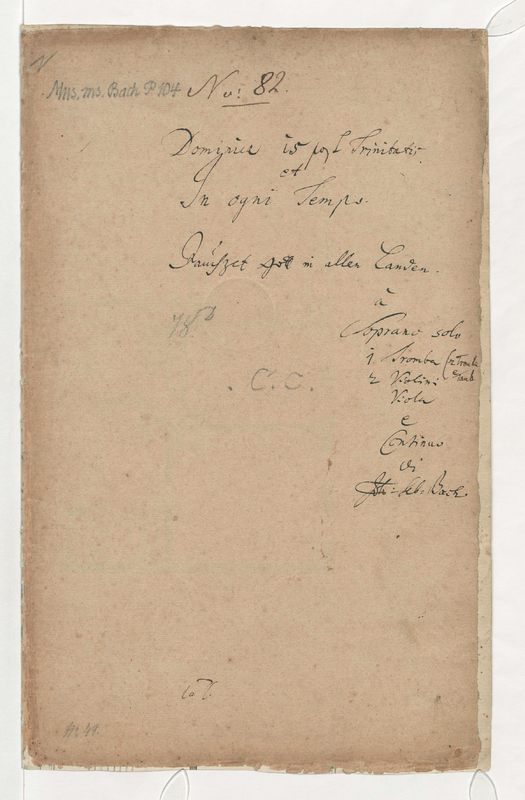 Mus. ms. Bach P 104 No: 82.
Dominica 15 post Trinitatis
et
In ogni Tempo.
Jauchzet Gott in allen Landen.
à
Soprano solo
1 Tromba
2 Violini
Viola
e
Continuo
di
Joh: Seb: Bach
C. C.